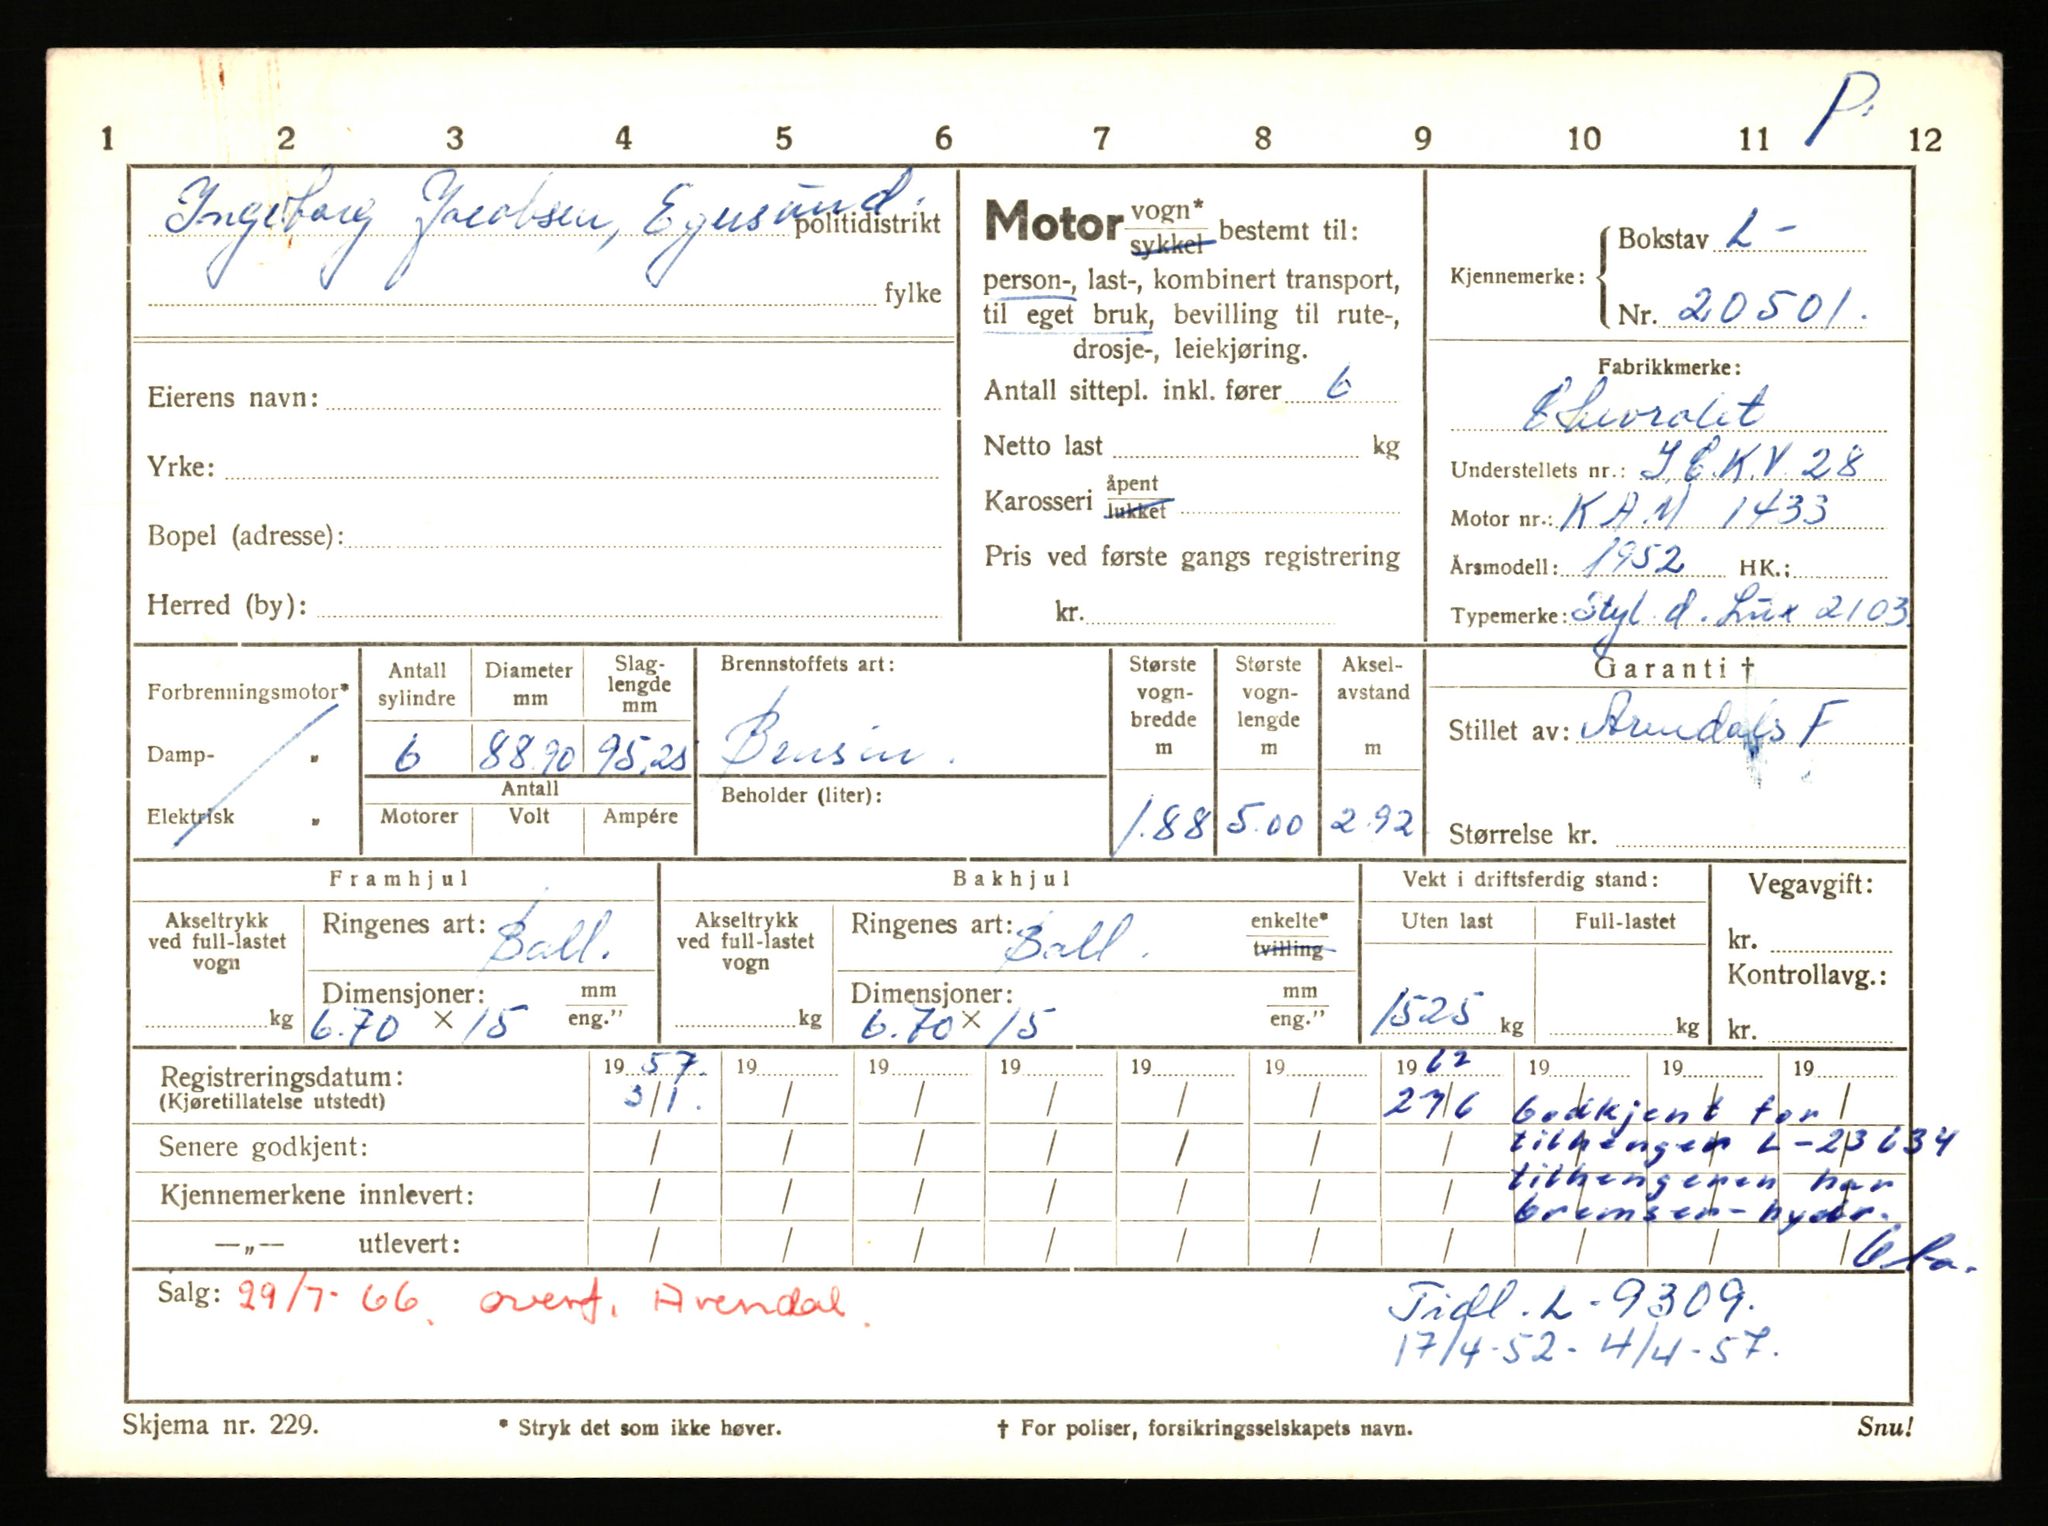 P.
1 2 3 4 5 6 7 8 9 10 11 12
Ingeborg Jacobsen, Egersund. politidistrikt
fylke
Eierens navn:
Yrke:
Bopel (adresse):
Herred (by):
Motor vogn* sykkel bestemt til:
person-, last-, kombinert transport,
til eget bruk, bevilling til rute-,
drosje-, leiekjøring.
Antall sittepl. inkl. fører 6
Netto last kg
Karosseri åpent lukket
Pris ved første gangs registrering
kr.
Kjennemerke: Bokstav L -
Nr. 20501.
Fabrikkmerke:
Chevrolet
Understellets nr.: J.E.K.V. 28
Motor nr.: KAM 1433
Årsmodell: 1952 HK.:
Typemerke: Styl. d. Lux 2103.
Forbrenningsmotor*
Damp- „
Elektrisk „
Antall sylindre
6
Diameter mm
88.90
Slaglengde mm
95,25
Antall
Motorer Volt Ampére
Brennstoffets art:
Bensin.
Beholder (liter):
Største vognbredde m
1.88
Største vognlengde m
5.00
Akselavstand m
2.92
Garanti †
Stillet av: Arendals F
Størrelse kr.
Framhjul
Akseltrykk ved full-lastet vogn
kg
Ringenes art: Ball.
Dimensjoner: mm eng."
6.70 × 15
Bakhjul
Akseltrykk ved full-lastet vogn
kg
Ringenes art: Ball. enkelte* tvilling
Dimensjoner: mm eng."
6.70 × 15
Vekt i driftsferdig stand:
Uten last Full-lastet
1525 kg kg
Vegavgift:
kr.
Kontrollavg.:
kr.
Registreringsdatum: 19 57. 19 19 19 19 19 19 62 19 19 19
(Kjøretillatelse utstedt) 3/1. / / / / / 27/6 Godkjent for
Senere godkjent: tilhenger L-23634
Kjennemerkene innlevert: tilhengeren har
bremser-hydr.
—„— utlevert:
Salg: 29/7-66. overf. Arendal.
Tidl. L-9309.
17/4-52 - 4/4-57.
Skjema nr. 229.
* Stryk det som ikke høver.
† For poliser, forsikringsselskapets navn.
Snu!